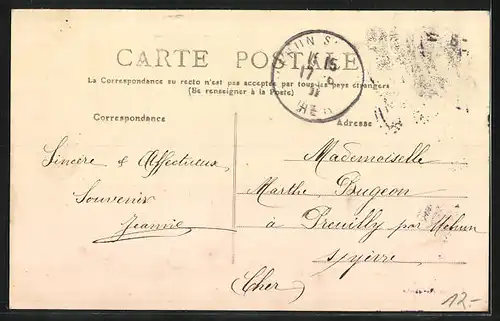 CARTE POSTALE
La Correspondance au recto n'est pas acceptée par tous les pays étrangers
(Se renseigner à la Poste)
Correspondance
Adresse
Sincère & Affectueux
Souvenir
Jeannie
Mademoiselle
Marthe Dougeon
à Preuilly par Mehun
s/yèvre
Cher
12.-